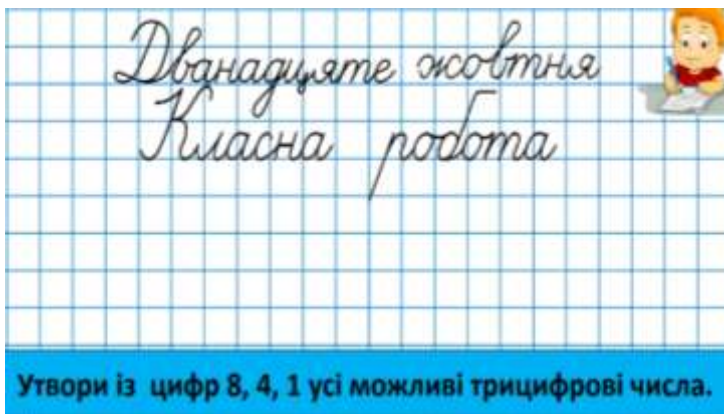 Дванадцяте жовтня
Класна робота
Утвори із цифр 8, 4, 1 усі можливі трицифрові числа.